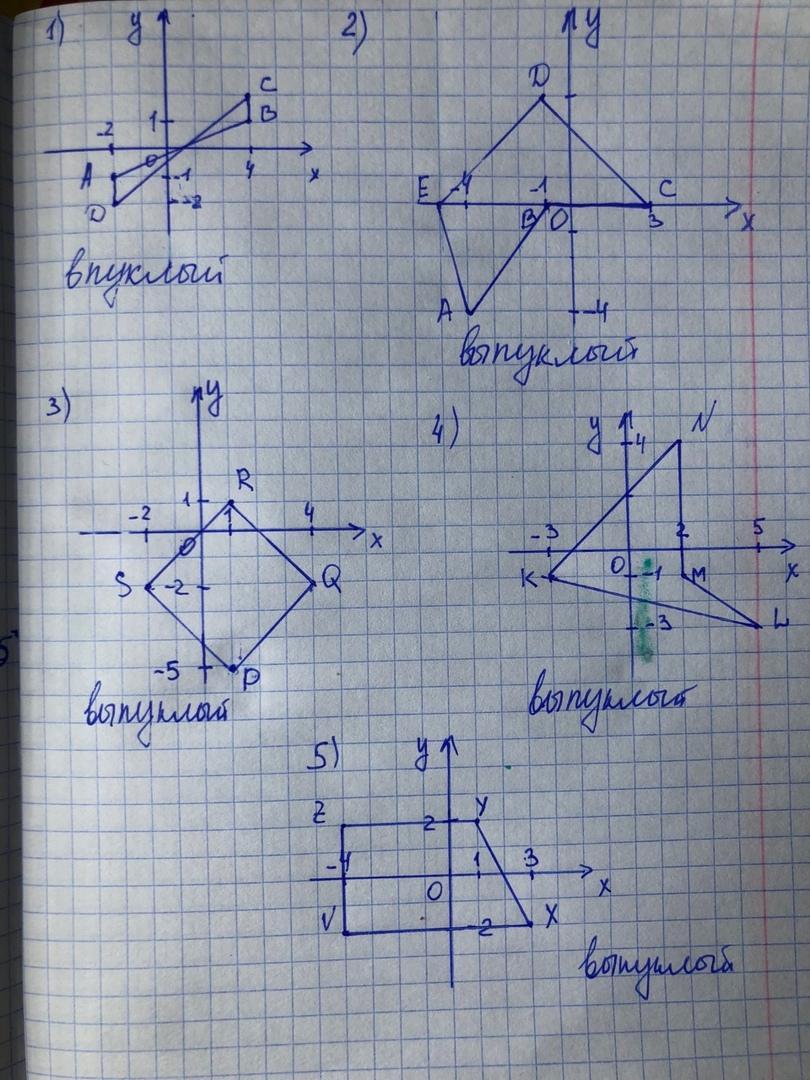 1) у 2) у
D
C
-2 1 B
0 4 x
A -1
D -2
E -4 -1 C
B 0 3 x
впуклый
A -4
выпуклый
3) у
4) у 4 N
R
-2 1 1 4
0 x
-3 2 5
x
S -2 Q
K 0 -1 M
-3 L
-5 P
выпуклый
выпуклый
5) у
Z 2 Y
-4 1 3
0 x
V -2 X
выпуклый